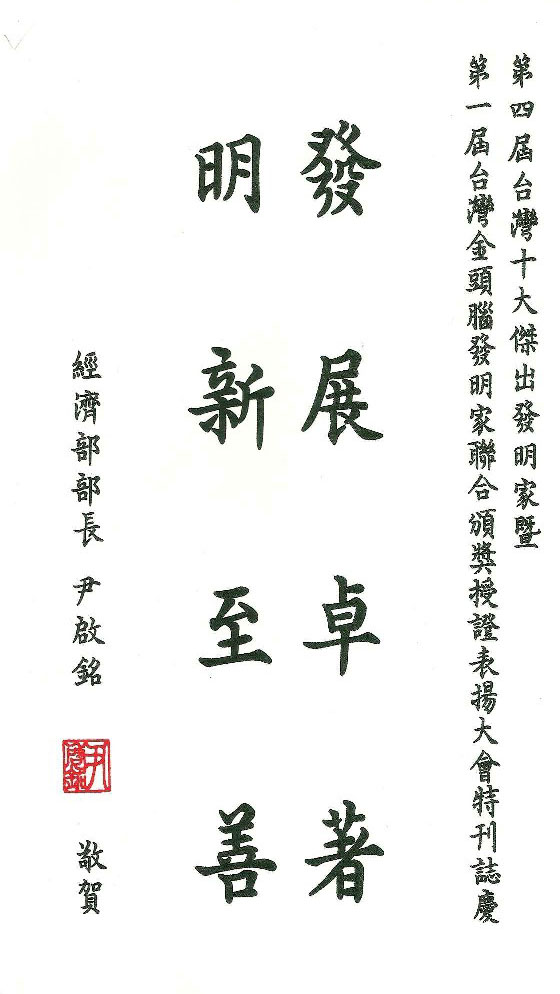 第四屆台灣十大傑出發明家暨
第一屆台灣金頭腦發明家聯合頒獎授證表揚大會特刊誌慶
發展卓著
明新至善
經濟部部長 尹啟銘 敬賀
尹啟銘